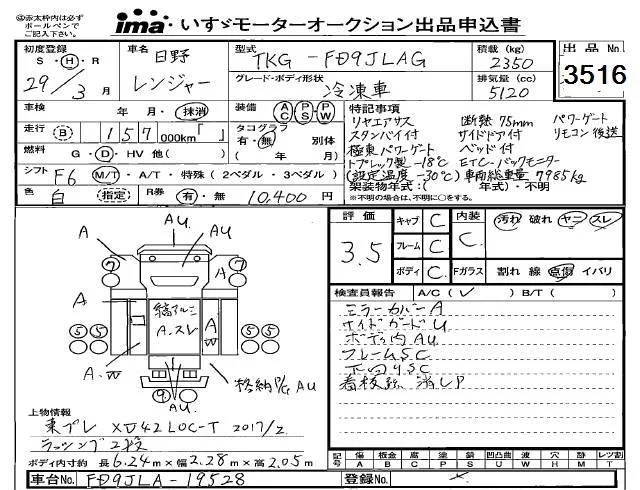 ㊟赤太枠内は必ず
ボールペンで
ご記入下さい。
ima いすゞモーターオークション出品申込書
初度登録 S・H・R 29/3月
車名 日野 レンジャー
型式 TKG-FD9JLAG
グレード・ボディ形状 冷凍車
積載(kg) 2350
排気量(cc) 5120
出品No. 3516
車検 年 月・抹消
装備 AC PS PW
走行 (B) 157 000km「 」
タコグラフ 有・無 別体 ( 年 月)
燃料 G・D・HV 他( )
シフト F6 M/T・A/T・特殊(2ペダル・3ペダル)
色 白 (指定) R券 有・無 10,400円
特記事項
リヤエアサス 断熱75mm パワーゲート
スタンバイ付 サイドドア付 リモコン後送
極東パワーゲート ベッド付
トプレック製-18℃ ETC・バックモニター
(設定温度-30℃) 車両総重量7985kg
架装物年式:( 年式)・不明
※不明の場合は、不明に○をする。
評価 3.5
キャブ C
フレーム C
ボディ C
内装 C
Fガラス
汚れ 破れ ヤニ スレ
割れ 線 点傷 イバリ
検査員報告 A/C(✓) B/T( )
ミラーカバーA
サイドガードU
ボディ内AU
フレームSC
下回りSC
看板跡 消しP
A AU A
7 7
A 縞アルミ A.スレ A W
5 5 5 5
A.W
9
AU
格納P/G AU
上物情報
東プレ XV42LOC-T 2017/2
ラッシング2段
ボディ内寸約 長6.24m×幅2.28m×高2.05m
記号 傷A 板金B 腐C 塗P 錆S 凹凸曲U 波W 穴H 跡M レツ割T
車台No. FD9JLA-19528 登録No.